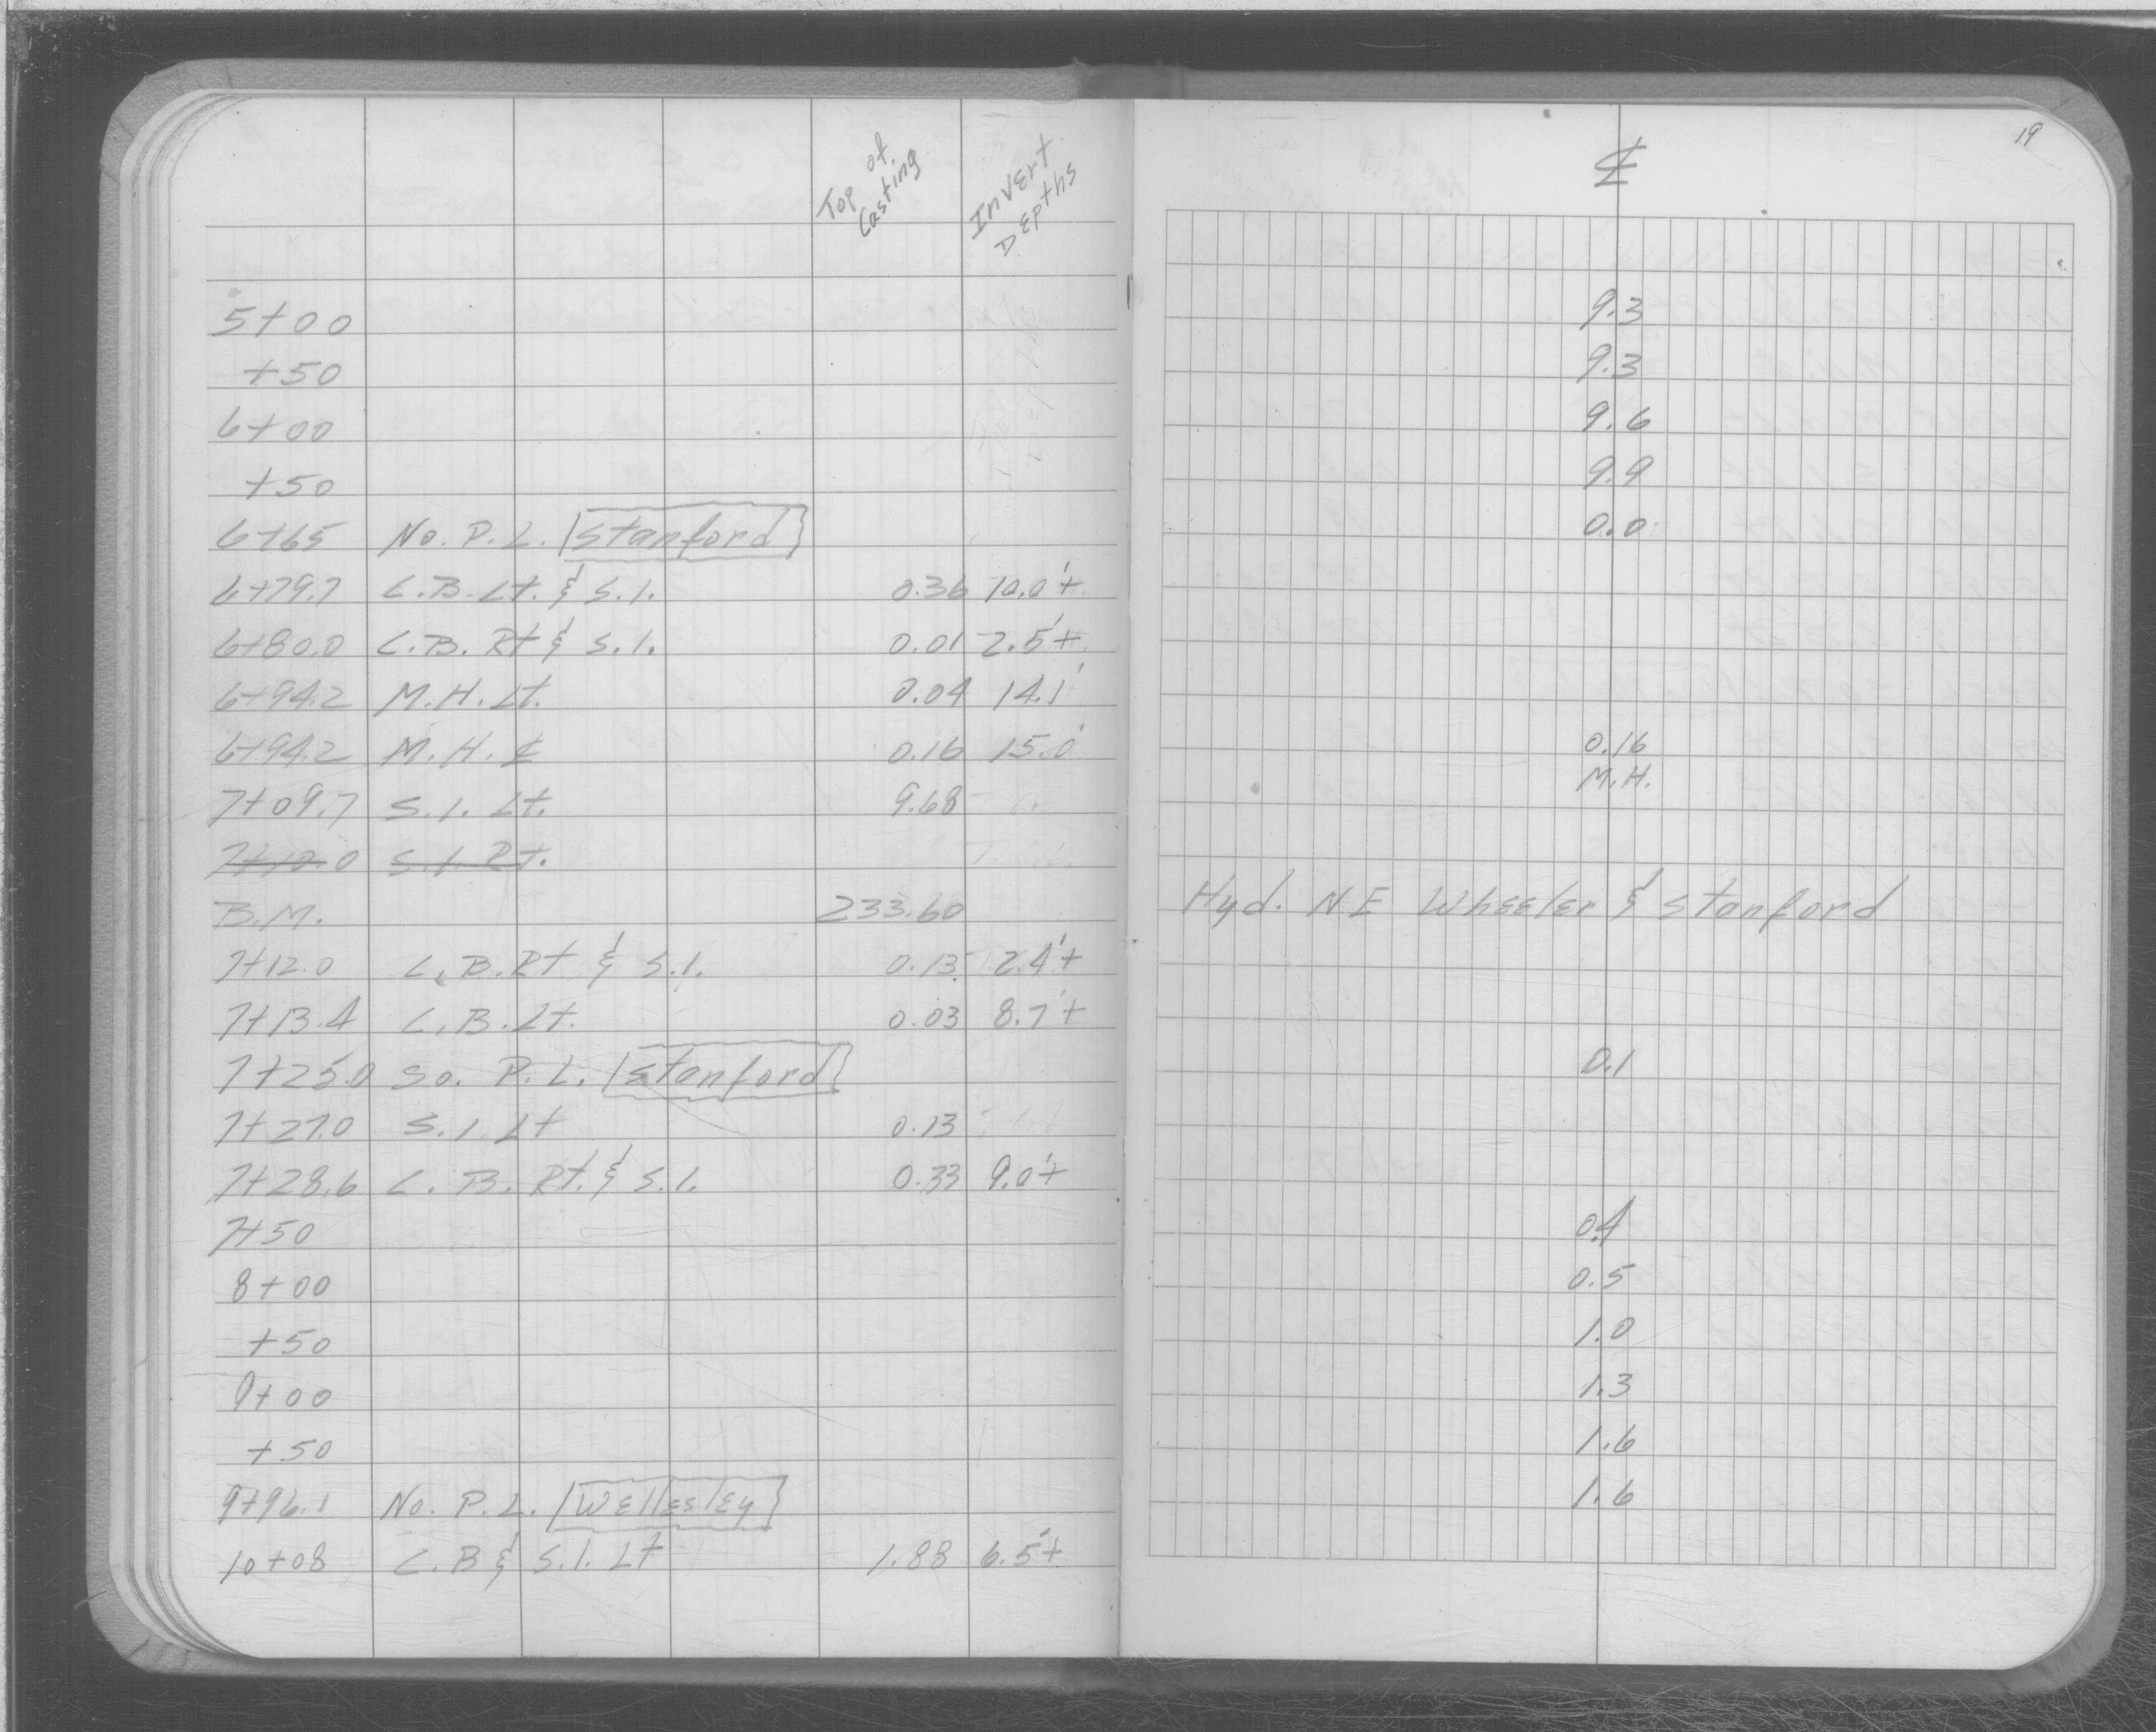 19
Top of Casting Invert Depths ℄
5+00 9.3
+50 9.3
6+00 9.6
+50 9.9
6+65 No. P.L. Stanford 0.0
6+79.7 C.B. Lt. & S.I. 0.36 10.0'+
6+80.0 C.B. Rt & S.I. 0.01 2.5'+
6+94.2 M.H. Lt. 0.04 14.1'
6+94.2 M.H. ℄ 0.16 15.0' 0.16
M.H.
7+09.7 S.I. Lt. 9.68
7+10.0 S.I. Rt.
B.M. 233.60 Hyd. NE Wheeler & Stanford
7+12.0 C.B. Rt & S.I. 0.13 2.4'+
7+13.4 C.B. Lt. 0.03 8.7'+
7+25.0 So. P.L. Stanford 0.1
7+27.0 S.I. Lt 0.13
7+28.6 C.B. Rt. & S.I. 0.33 9.0'+
7+50 0.4
8+00 0.5
+50 1.0
9+00 1.3
+50 1.6
9+96.1 No. P.L. Wellesley 1.6
10+08 C.B & S.I. Lt 1.88 6.5'+